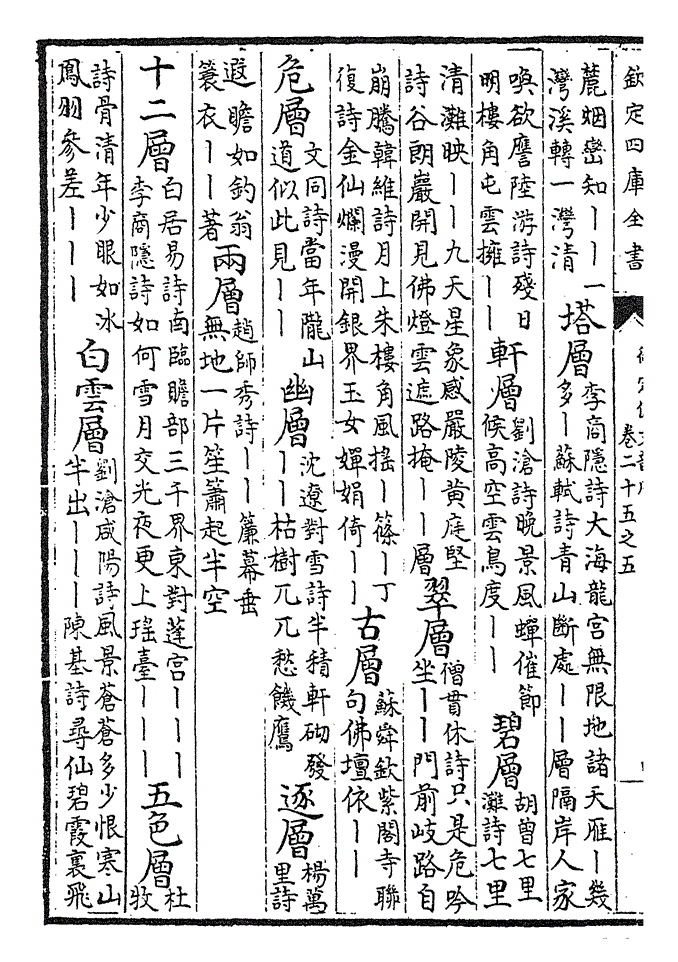 欽定四庫全書
卷二十五之五
麓烟巒知丨丨一灣溪轉一灣清塔層李商隱詩大海龍宮無限地諸天雁丨幾多丨蘇軾詩青山斷處丨丨層隔岸人家
喚欲譍陸游詩殘日明樓角屯雲擁丨丨軒層劉滄詩晚景風蟬催節候高空雲鳥度丨丨碧層胡曾七里灘詩七里
清灘映丨丨九天星象感嚴陵黄庭堅詩谷朗巖開見佛燈雲遮路掩丨丨層翠層僧貫休詩只是危吟坐丨丨門前岐路自
崩騰韓維詩月上朱樓角風揺丨篠丨丁復詩金仙爛漫開銀界玉女嬋娟倚丨丨古層蘇舜欽紫閣寺聯句佛壇依丨丨
危層文同詩當年隴山道似此見丨丨幽層沈遼對雪詩半積軒砌發丨丨枯樹兀兀愁饑鷹逐層楊萬里詩
遐瞻如釣翁蓑衣丨丨著兩層趙師秀詩丨丨簾幕垂無地一片笙簫起半空
十二層白居易詩南臨瞻部三千界東對蓬宫丨丨丨李商隱詩如何雪月交光夜更上瑤臺丨丨丨五色層杜牧
詩骨清年少眼如冰鳳羽參差丨丨丨白雲層劉滄咸陽詩風景蒼蒼多少恨寒山半出丨丨丨陳基詩尋仙碧霞裏飛